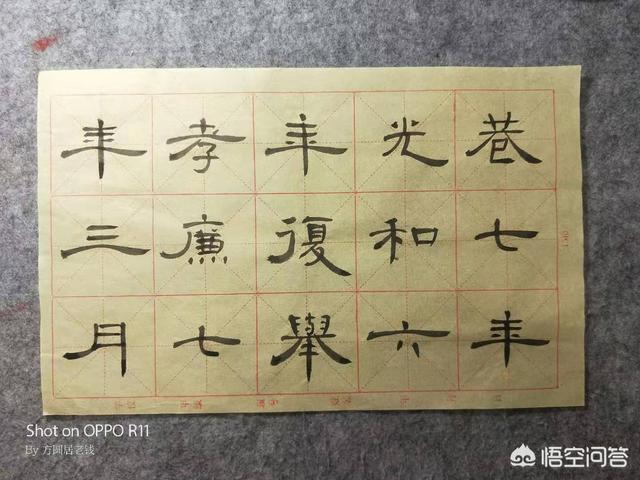 巷七年
光和六
年復舉
孝廉七
年三月
Shot on OPPO R11
By 方圆居老钱
悟空问答